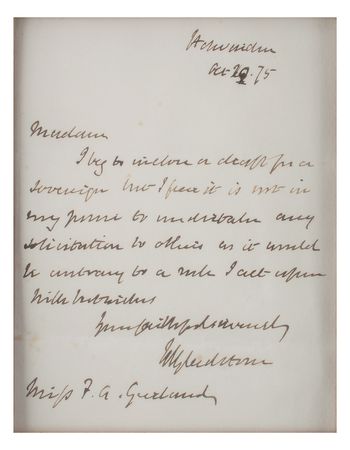 Hawarden
Oct 29. 75
Madam
I beg to inclose a draft for a
sovereign but I fear it is not in
my power to undertake any
solicitation to others as it would
be contrary to a rule I act upon
With best wishes
Your faithful servant
WEGladstone
Miss F. A.